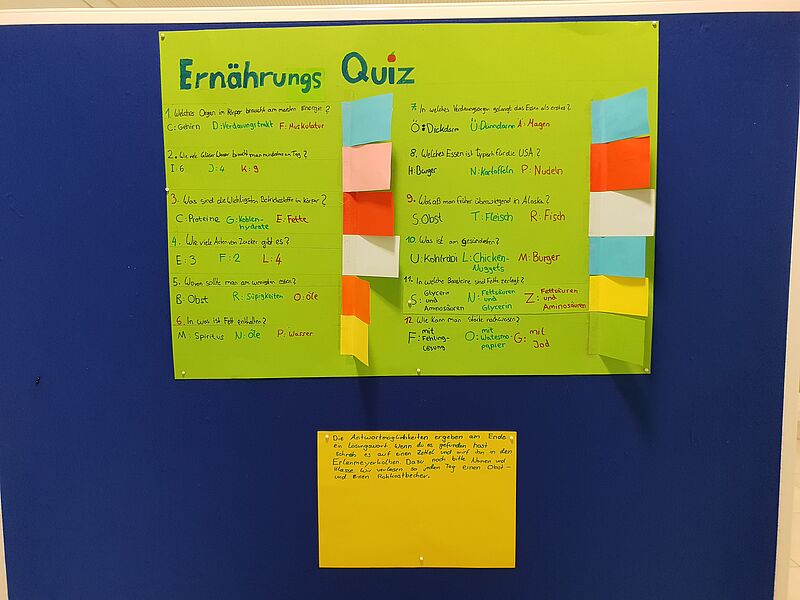 Ernährungs Quiz
1. Welches Organ im Körper braucht am meisten Energie?
C: Gehirn D: Verdauungstrakt F: Muskulatur
2. Wie viel Gläser Wasser braucht man mindestens am Tag?
I: 6 J: 4 K: 9
3. Was sind die wichtigsten Betriebsstoffe im Körper?
C: Proteine G: Kohlen- E: Fette
hydrate
4. Wie viele Arten von Zucker gibt es?
E: 3 F: 2 L: 4
5. Wovon sollte man am wenigsten essen?
B: Obst R: Süßigkeiten O: Öle
6. In was ist Fett enthalten?
M: Spiritus N: Öle P: Wasser
7. In welches Verdauungsorgan gelangt das Essen als erstes?
Ö: Dickdarm Ü: Dünndarm A: Magen
8. Welches Essen ist typisch für die USA?
H: Burger N: Kartoffeln P: Nudeln
9. Was aß man früher überwiegend in Alaska?
S Obst T: Fleisch R: Fisch
10. Was ist am gesündesten?
U: Kohlrabi L: Chicken- M: Burger
Nuggets
11. In welche Bausteine sind Fette zerlegt?
S: Glycerin und Aminosäuren N: Fettsäuren und Glycerin Z: Fettsäuren und Aminosäuren
12. Wie kann man Stärke nachweisen?
F: mit Fehling- Lösung O: mit Watesmo- papier G: mit Jod
Die Antwortmöglichkeiten ergeben am Ende
ein Lösungswort. Wenn du es gefunden hast
schreib es auf einen Zettel und wirf ihn in den
Erlenmeyerkolben. Dazu noch bitte Namen und
Klasse. Wir verlosen so jeden Tag einen Obst-
und einen Rohkostbecher.